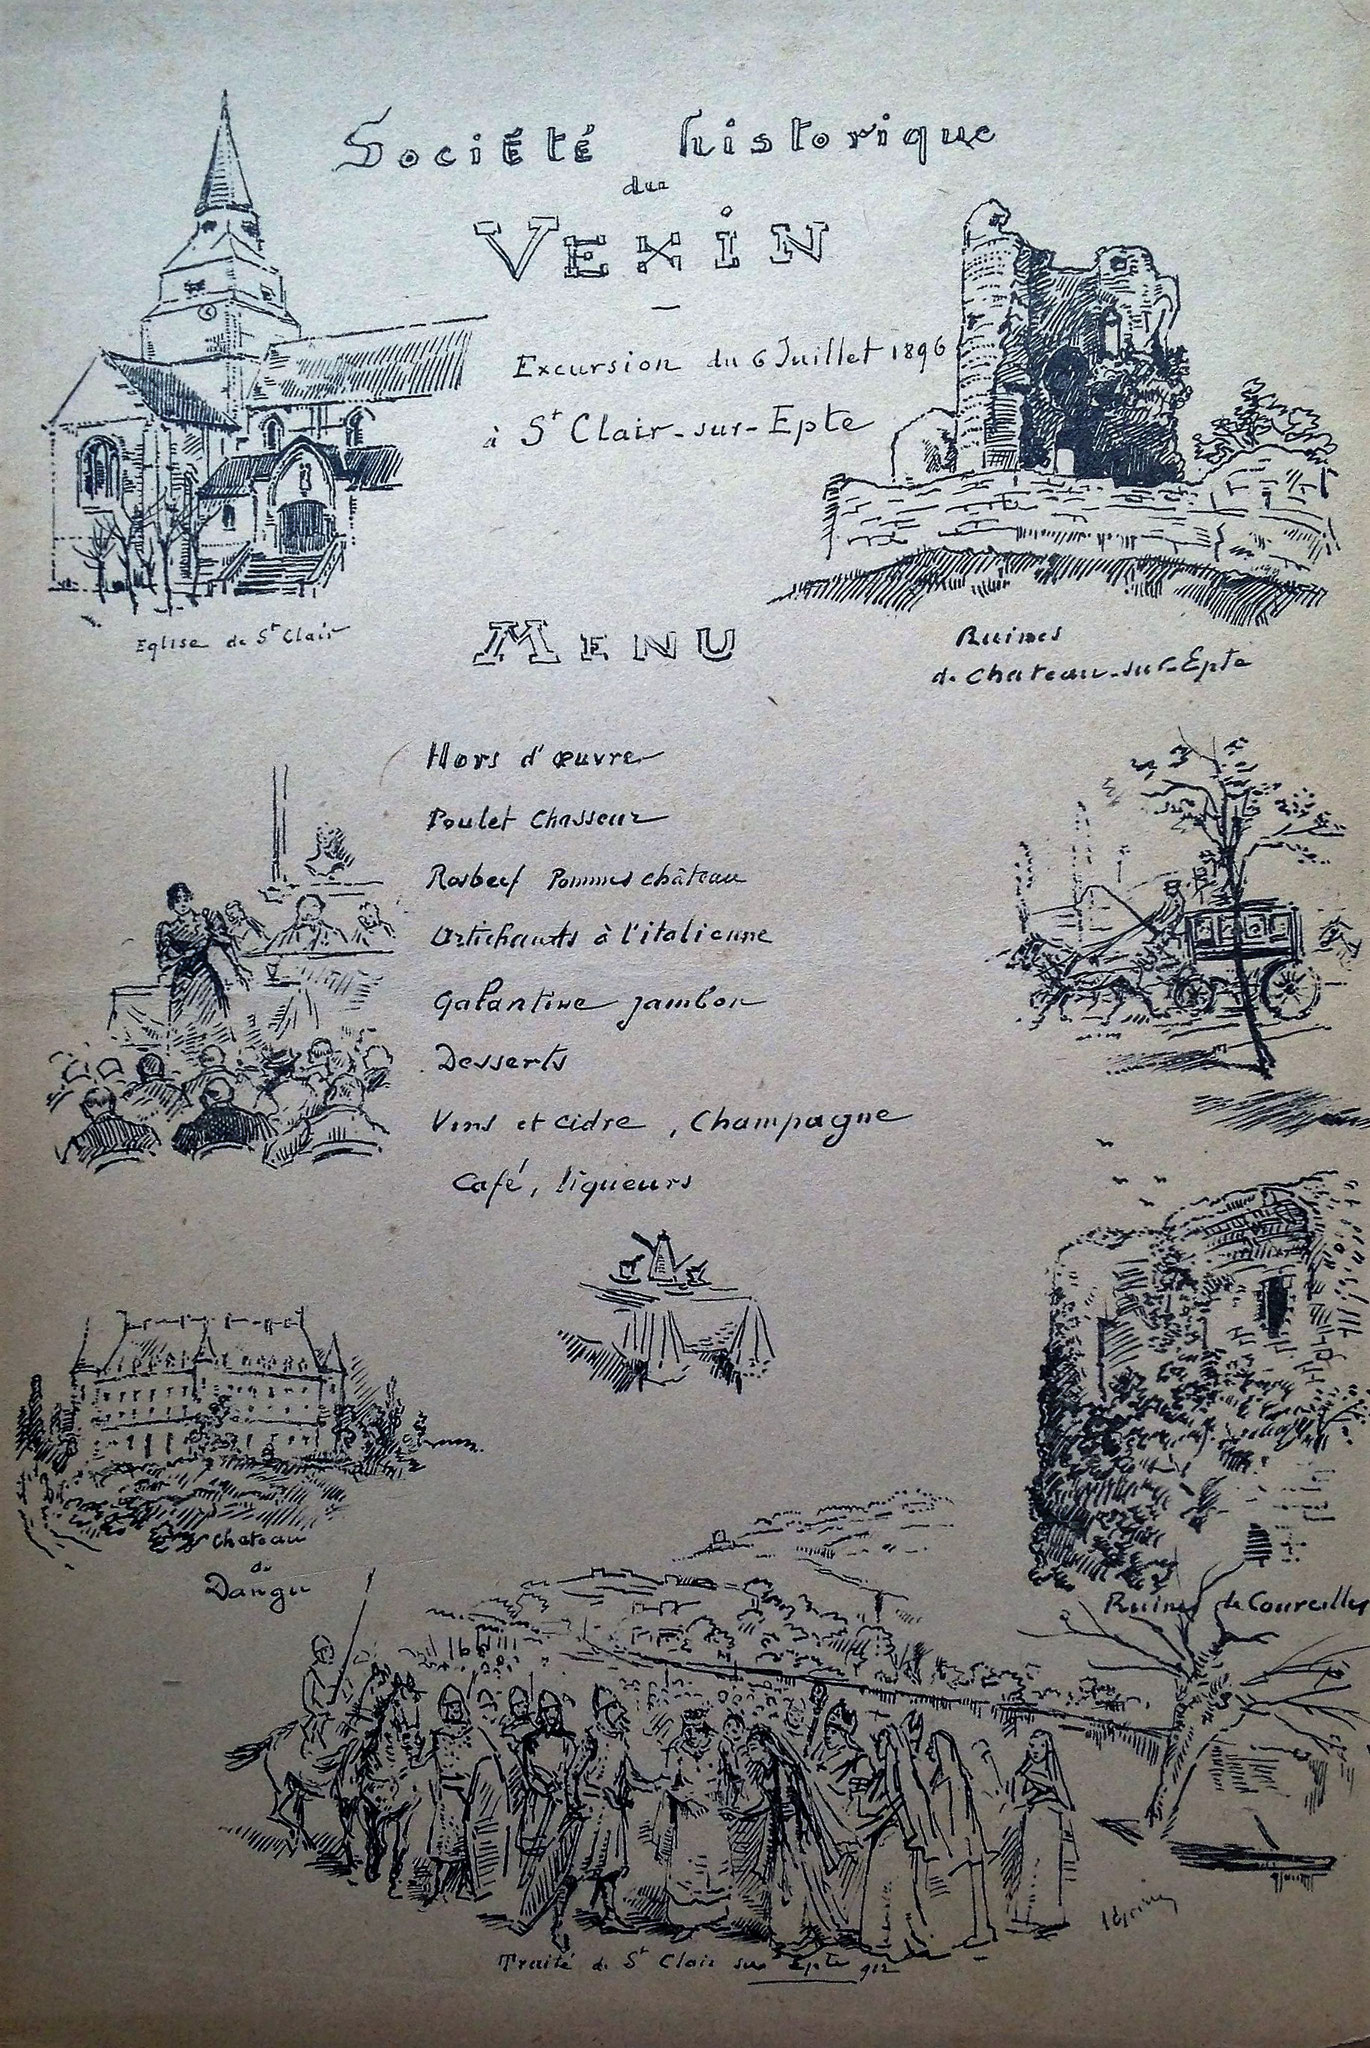 Société historique
du
Vexin
Excursion du 6 Juillet 1896
à St Clair-sur-Epte
Eglise de St Clair
Ruines
de Chateau-sur-Epte
Menu
Hors d'œuvre
Poulet Chasseur
Rosbeef Pommes château
Artichauts à l'italienne
Galantine jambon
Desserts
Vins et cidre, Champagne
Café, liqueurs
Chateau
de
Dangu
Ruines de Courcelles
Traité de St Clair sur Epte 912